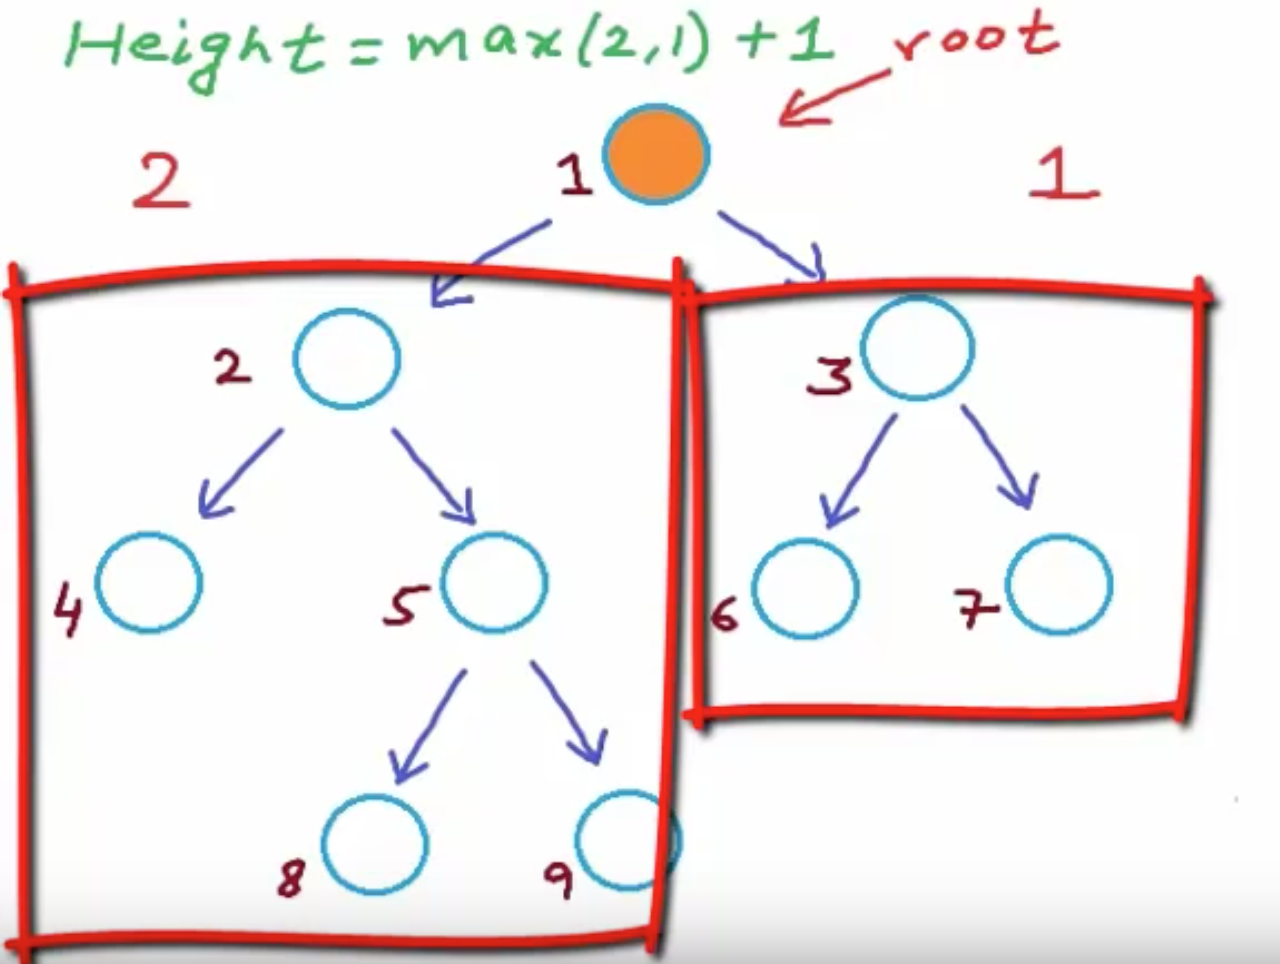 Height = max(2,1) + 1
root
2
1
1
2
3
4
5
6
7
8
9